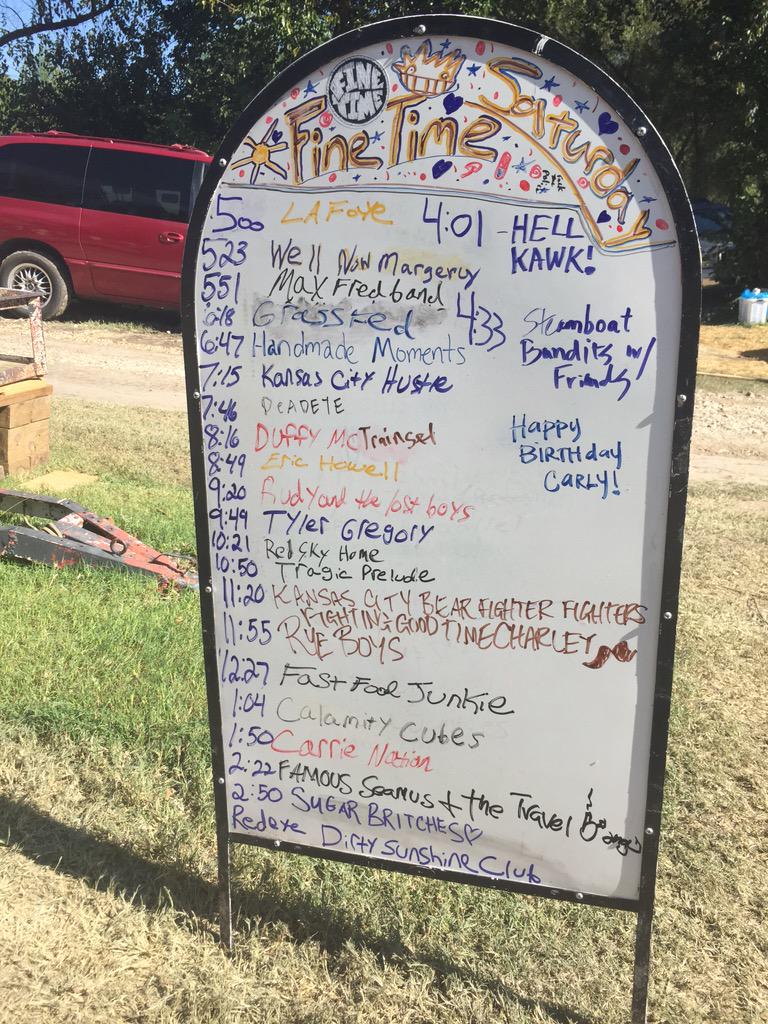 FINE TIME
Fine Time Saturday
500 LAFoye
523 Well Now Margervy
551 Max Fredband
6:18 Grassfed
6:47 Handmade Moments
7:15 Kansas City Hustle
7:46 DeADEYE
8:16 Duffy McTrainsel
8:49 Eric Howell
9:20 Rudy and the lost boys
9:49 Tyler Gregory
10:21 Rel Sky Home
10:50 Tragic Prelude
11:20 KANSAS CITY BEAR FIGHTER FIGHTERS
FIGHTING GOOD TIME CHARLEY
11:55 RYE BOYS
12:27 Fast Food Junkie
1:04 Calamity Cubes
1:50 Carrie Nation
2:22 FAMOUS Seamus + the Travel B
2:50 SUGAR BRITCHES♡
Redeye Dirty Sunshine Club
4:01 - HELL
KAWK!
4:33 Steamboat
Bandits w/
Friends
Happy
BIRTHday
CARLY!